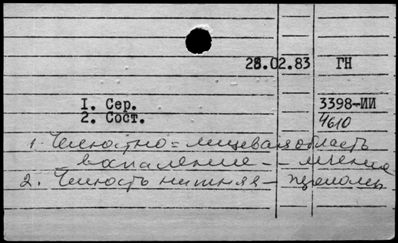 28.02.83 ГН
1. Сер. 3398-ИИ
2. Сост. 4610
1. Челюстно=лицевая область
– воспаление – – лечение
2. Челюсть нижняя – перелом